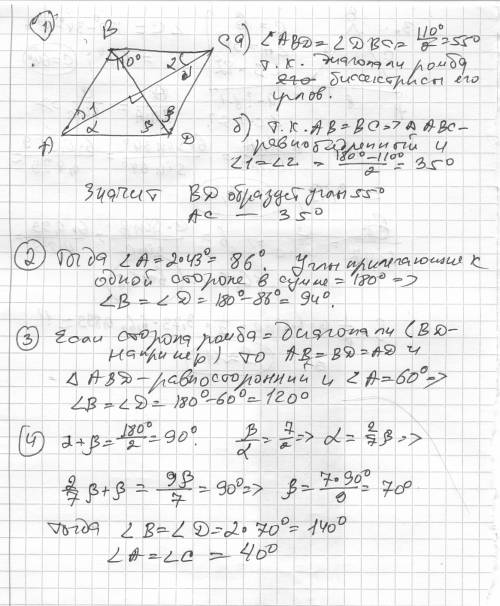 1)
B
C
110°
2
α
1
A
α
β
β
D
а) ∠ABD = ∠DBC = 110°/2 = 55°
т.к. диагонали ромба
его биссектрисы его
углов.
б) Т.к. AB = BC => Δ ABC –
равнобедренный и
∠1 = ∠2 = (180° – 110°)/2 = 35°
Значит BD образует углы 55°
AC — 35°
2 Тогда ∠A = 2·43° = 86°. Углы прилегающие к
одной стороне в сумме = 180° =>
∠B = ∠D = 180° – 86° = 94°.
3 Если сторона ромба = диагонали (BD –
например) то AB = BD = AD и
Δ ABD – равносторонний и ∠A = 60° =>
∠B = ∠D = 180° – 60° = 120°
4 α + β = 180°/2 = 90°. β/α = 7/2 => α = 2/7 β =>
2/7 β + β = 9β/7 = 90° => β = 7·90°/9 = 70°
Тогда ∠B = ∠D = 2·70° = 140°
∠A = ∠C = 40°